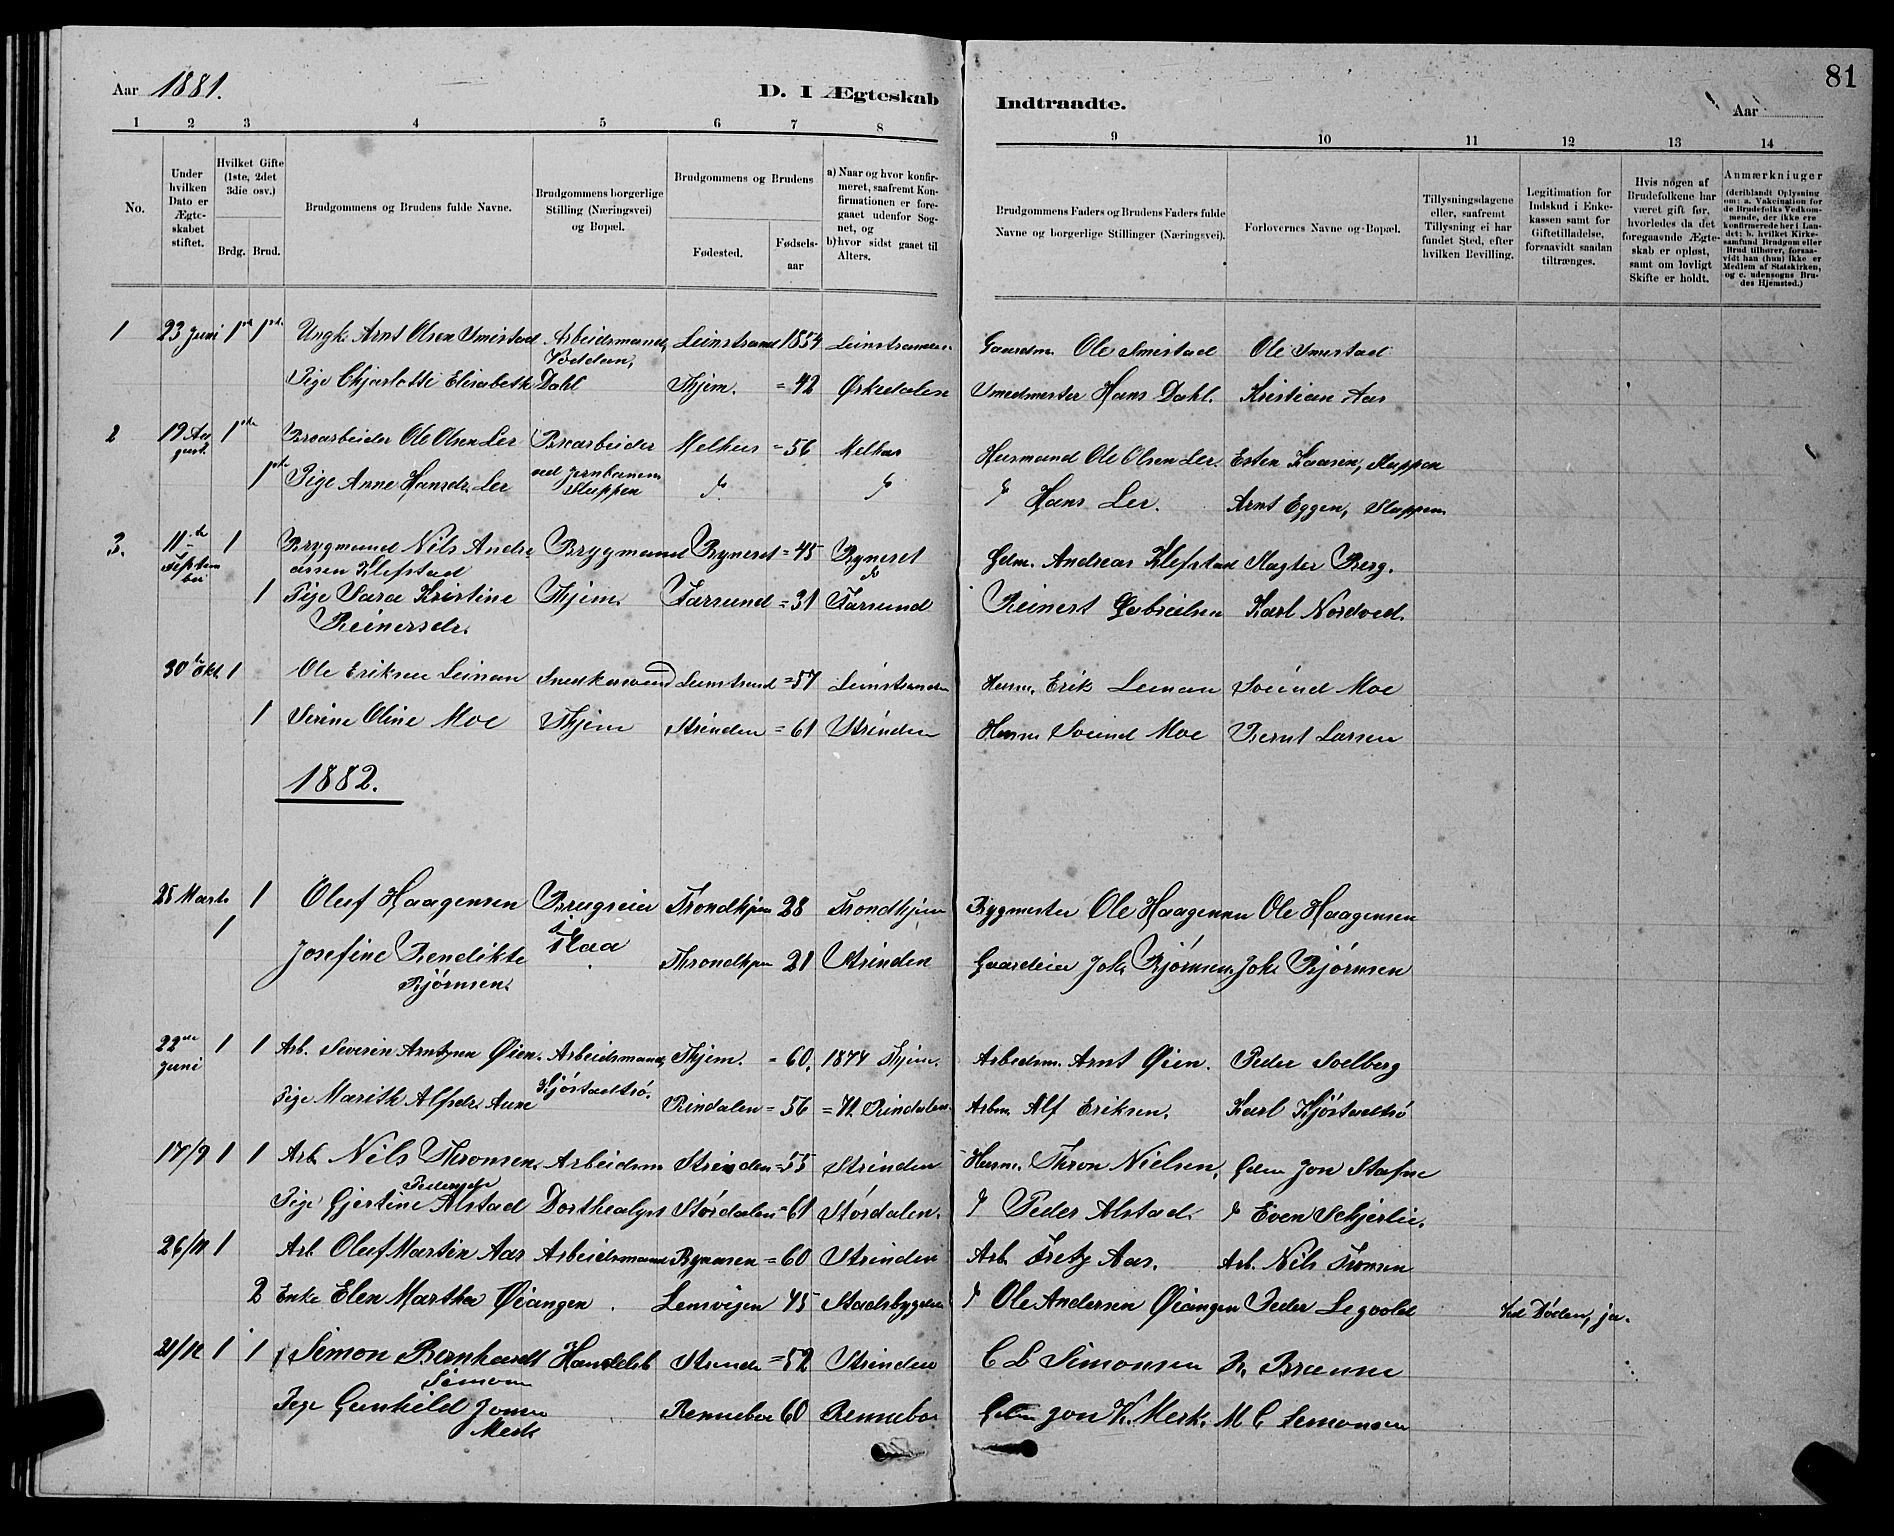 81
Aar 1881. D. I Ægteskab Indtraadte. Aar
1 2 3 4 5 6 7 8 9 10 11 12 13 14
No.
Under hvilken Dato er Ægteskabet stiftet.
Hvilket Gifte (1ste, 2det 3die osv.)
Brdg. Brud.
Brudgommens og Brudens fulde Navne.
Brudgommens borgerlige Stilling (Næringsvei) og Bopæl.
Brudgommens og Brudens
Fødested. Fødsels-aar
a) Naar og hvor konfirmeret, saafremt Konfirmationen er foregaaet udenfor Sognet, og
b) hvor sidst gaaet til Alters.
Brudgommens Faders og Brudens Faders fulde Navne og borgerlige Stillinger (Næringsvei).
Forlovernes Navne og Bopæl.
Tillysningsdagene eller, saafremt Tillysning ei har fundet Sted, efter hvilken Bevilling.
Legitimation for Indskud i Enkekassen samt for Giftetilladelse, forsaavidt saadan tiltrænges.
Hvis nogen af Brudefolkene har været gift før, hvorledes da det foregaaende Ægteskab er opløst, samt om lovligt Skifte er holdt.
Anmærkniuger (deriblandt Oplysning om: a. Vakcination for de Brudefolks Vedkommende, der ikke ere konfirmerede her i Landet; b. hvilket Kirkesamfund Brudgom eller Brud tilhører, forsaavidt han (hun) ikke er Medlem af Statskirken, og c. udensogns Brudes Hjemsted.)
1 23 Juni 1ste 1ste Ungk. Arnt Olsen Smistad Arbeidsmand, Leinstrand 1854 Leinstranden Gaardm. Ole Smistad Ole Smistad
Pige Chjarlotte Elisabeth Dahl Thjem. = 42 Ørkedalen Smedmester Hans Dahl. Kristian Aas
2 19 August 1ste Broarbeider Ole Olsen Ler Broarbeider Melhus = 56 Melhus Husmand Ole Olsen Ler. Esten Kaasen, Sluppen
1ste Pige Anne Hansdr. Ler ved Jernbanen Sluppen do do do Hans Ler. Arnt Eggen, Sluppen
3. 11te September 1 Brygmand Nils Andreassen Klefstad Brygmand Byneset = 45 Byneset Gdm. Andreas Klefstad Slagter Berg.
1 Pige Sara Kristine Reinersdr. Thjem. Farsund = 31 do Farsund Reinert Gabrielsen Karl Nordved.
30te Okt. 1 Ole Eriksen Leinan Snedkersvend Leinstrand = 57 Leinstranden Husm. Erik Leinan Svend Moe
1 Serine Oline Moe Thjem Strinden = 61 Strinden Husm Svend Moe Bernt Larsen
1882.
25 Marts 1 Oluf Haagensen Brugseier Trondhjem 28 Trondhjem Bygmester Ole Haagensen Ole Haagensen
1 Josefine Bendikte Bjørnsen. Throndhjem 21 Strinden Gaardeier Joh. Bjørnsen. Joh. Bjørnsen
22de Juni 1 1 Arb. Severin Arntzen Øien. Arbeidsmand, Thjem. = 60. 1874 Thjem. Arbeidsm. Arnt Øien. Peder Solberg
Pige Marith Alfsdr. Aune Kjøstadtrø. Rindalen = 56 = 71 Rindalen. Arbm. Alf Eriksen. Karl Kjøstadtrø
17/9 1 1 Arb. Nils Thronsen. Arbeidsm. Strinden = 55 Strinden Husm. Thron Nielsen. Gdm Jon Stafne
Pige Gjertine Pedersdr Alstad Dorthealyst Størdalen = 61 Størdalen. do Peder Alstad. do Even Schjerlie.
26/11 1 Arb. Oluf Martin Aas Arbeidsmand Bynæsen = 60 Strinden Arb. Fretz Aas. Arb. Nils Tronsen
2 Enke Elen Martha Øiangen. Lensvigen 45 Stadsbygden do Ole Andersen Øiangen Peder Legvold Ved Døden, ja.
21/12 1 1 Simon Bernhardt Simonsen Handelsb Strinde = 52 Strinden C L Simonsen R. Bræune
Pige Gunhild Jonsen Merk Rennebo 60 Rennebo Gdm Jon K. Merk. M C Simonsen